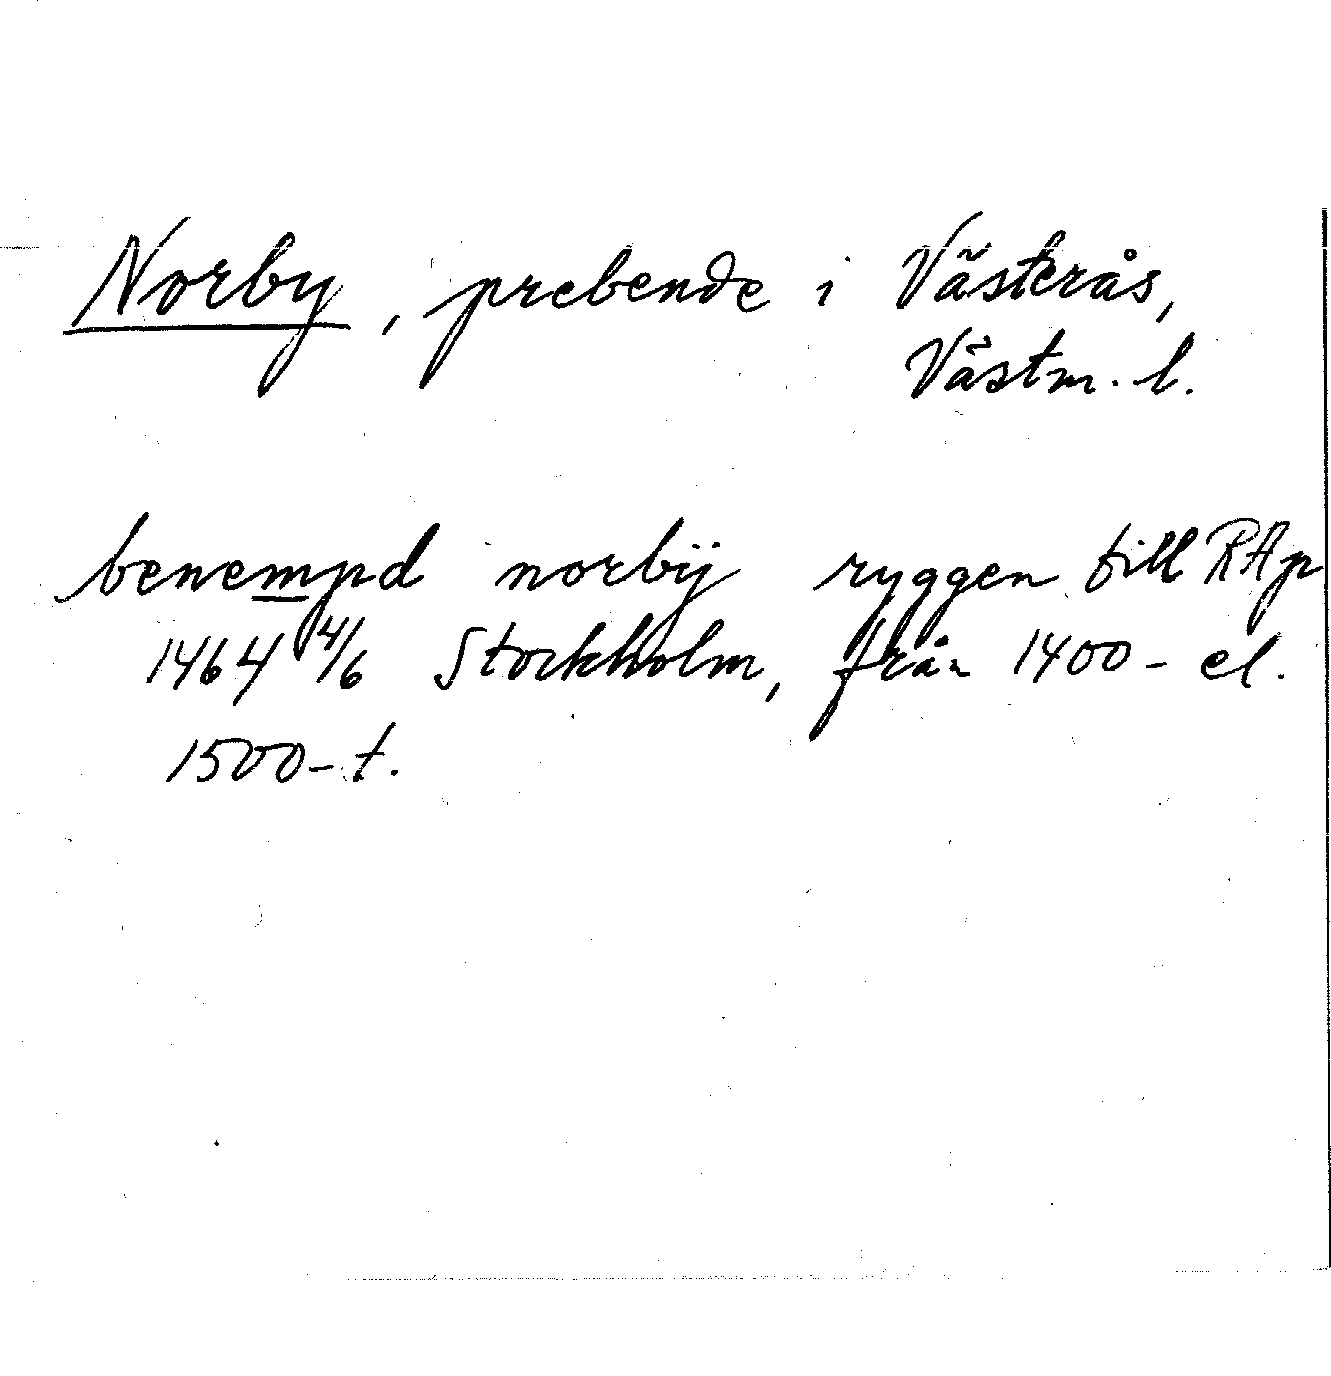 Norby, prebende i Västerås,
Västm. l.
benempd norbÿ ryggen till RAp
1464 4/6 Stockholm, från 1400- el.
1500-t.